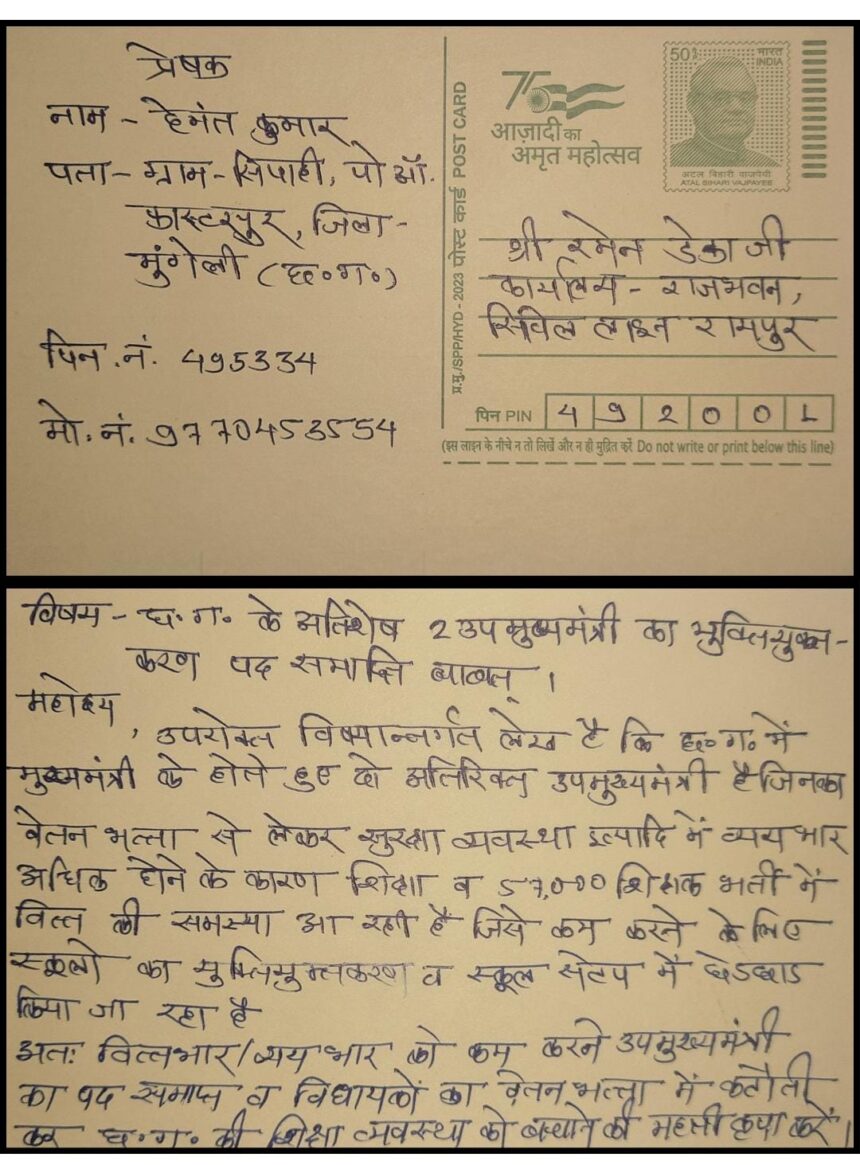 प्रेषक
नाम - हेमंत कुमार
पता - ग्राम - सिपाही, पो ऑ.
फास्टरपुर, जिला -
मुंगेली (छ०ग०)
पिन.नं. 495334
मो.नं. 9770453554
प्र.मु./SPP/HYD - 2023 पोस्ट कार्ड POST CARD
75
आज़ादी का
अमृत महोत्सव
50
भारत
INDIA
अटल बिहारी वाजपेयी
ATAL BIHARI VAJPAYEE
श्री रमेन डेका जी
कार्यालय - राजभवन,
सिविल लाइन रायपुर
पिन PIN 4 9 2 0 0 1
(इस लाइन के नीचे न तो लिखें और न ही मुद्रित करें Do not write or print below this line)
विषय - छ.ग. के अतिशेष 2 उपमुख्यमंत्री का युक्तियुक्त-
करण पद समाप्ति बाबत् ।
महोदय,
उपरोक्त विषयान्तर्गत लेख है कि छ०ग० में
मुख्यमंत्री के होते हुए दो अतिरिक्त उपमुख्यमंत्री है जिनका
वेतन भत्ता से लेकर सुरक्षा व्यवस्था इत्यादि में व्यय भार
अधिक होने के कारण शिक्षा व 57,000 शिक्षक भर्ती में
वित्त की समस्या आ रही है जिसे कम करने के लिए
स्कूलो का युक्तियुक्तकरण व स्कूल सेटप में छेडछाड
किया जा रहा है
अतः वित्तभार/व्यय भार को कम करने उपमुख्यमंत्री
का पद समाप्त व विधायकों का वेतन भत्ता में कटौती
कर छ.ग. की शिक्षा व्यवस्था को बचाने की महती कृपा करें।